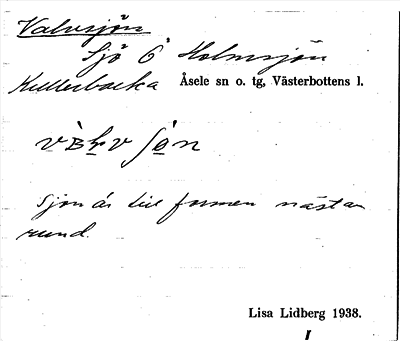 Valvsjön
Sjö 6 Holmsjön
Kullerbacka Åsele sn o. tg, Västerbottens l.
Sjön är till formen nästan
rund.
Lisa Lidberg 1938.
I